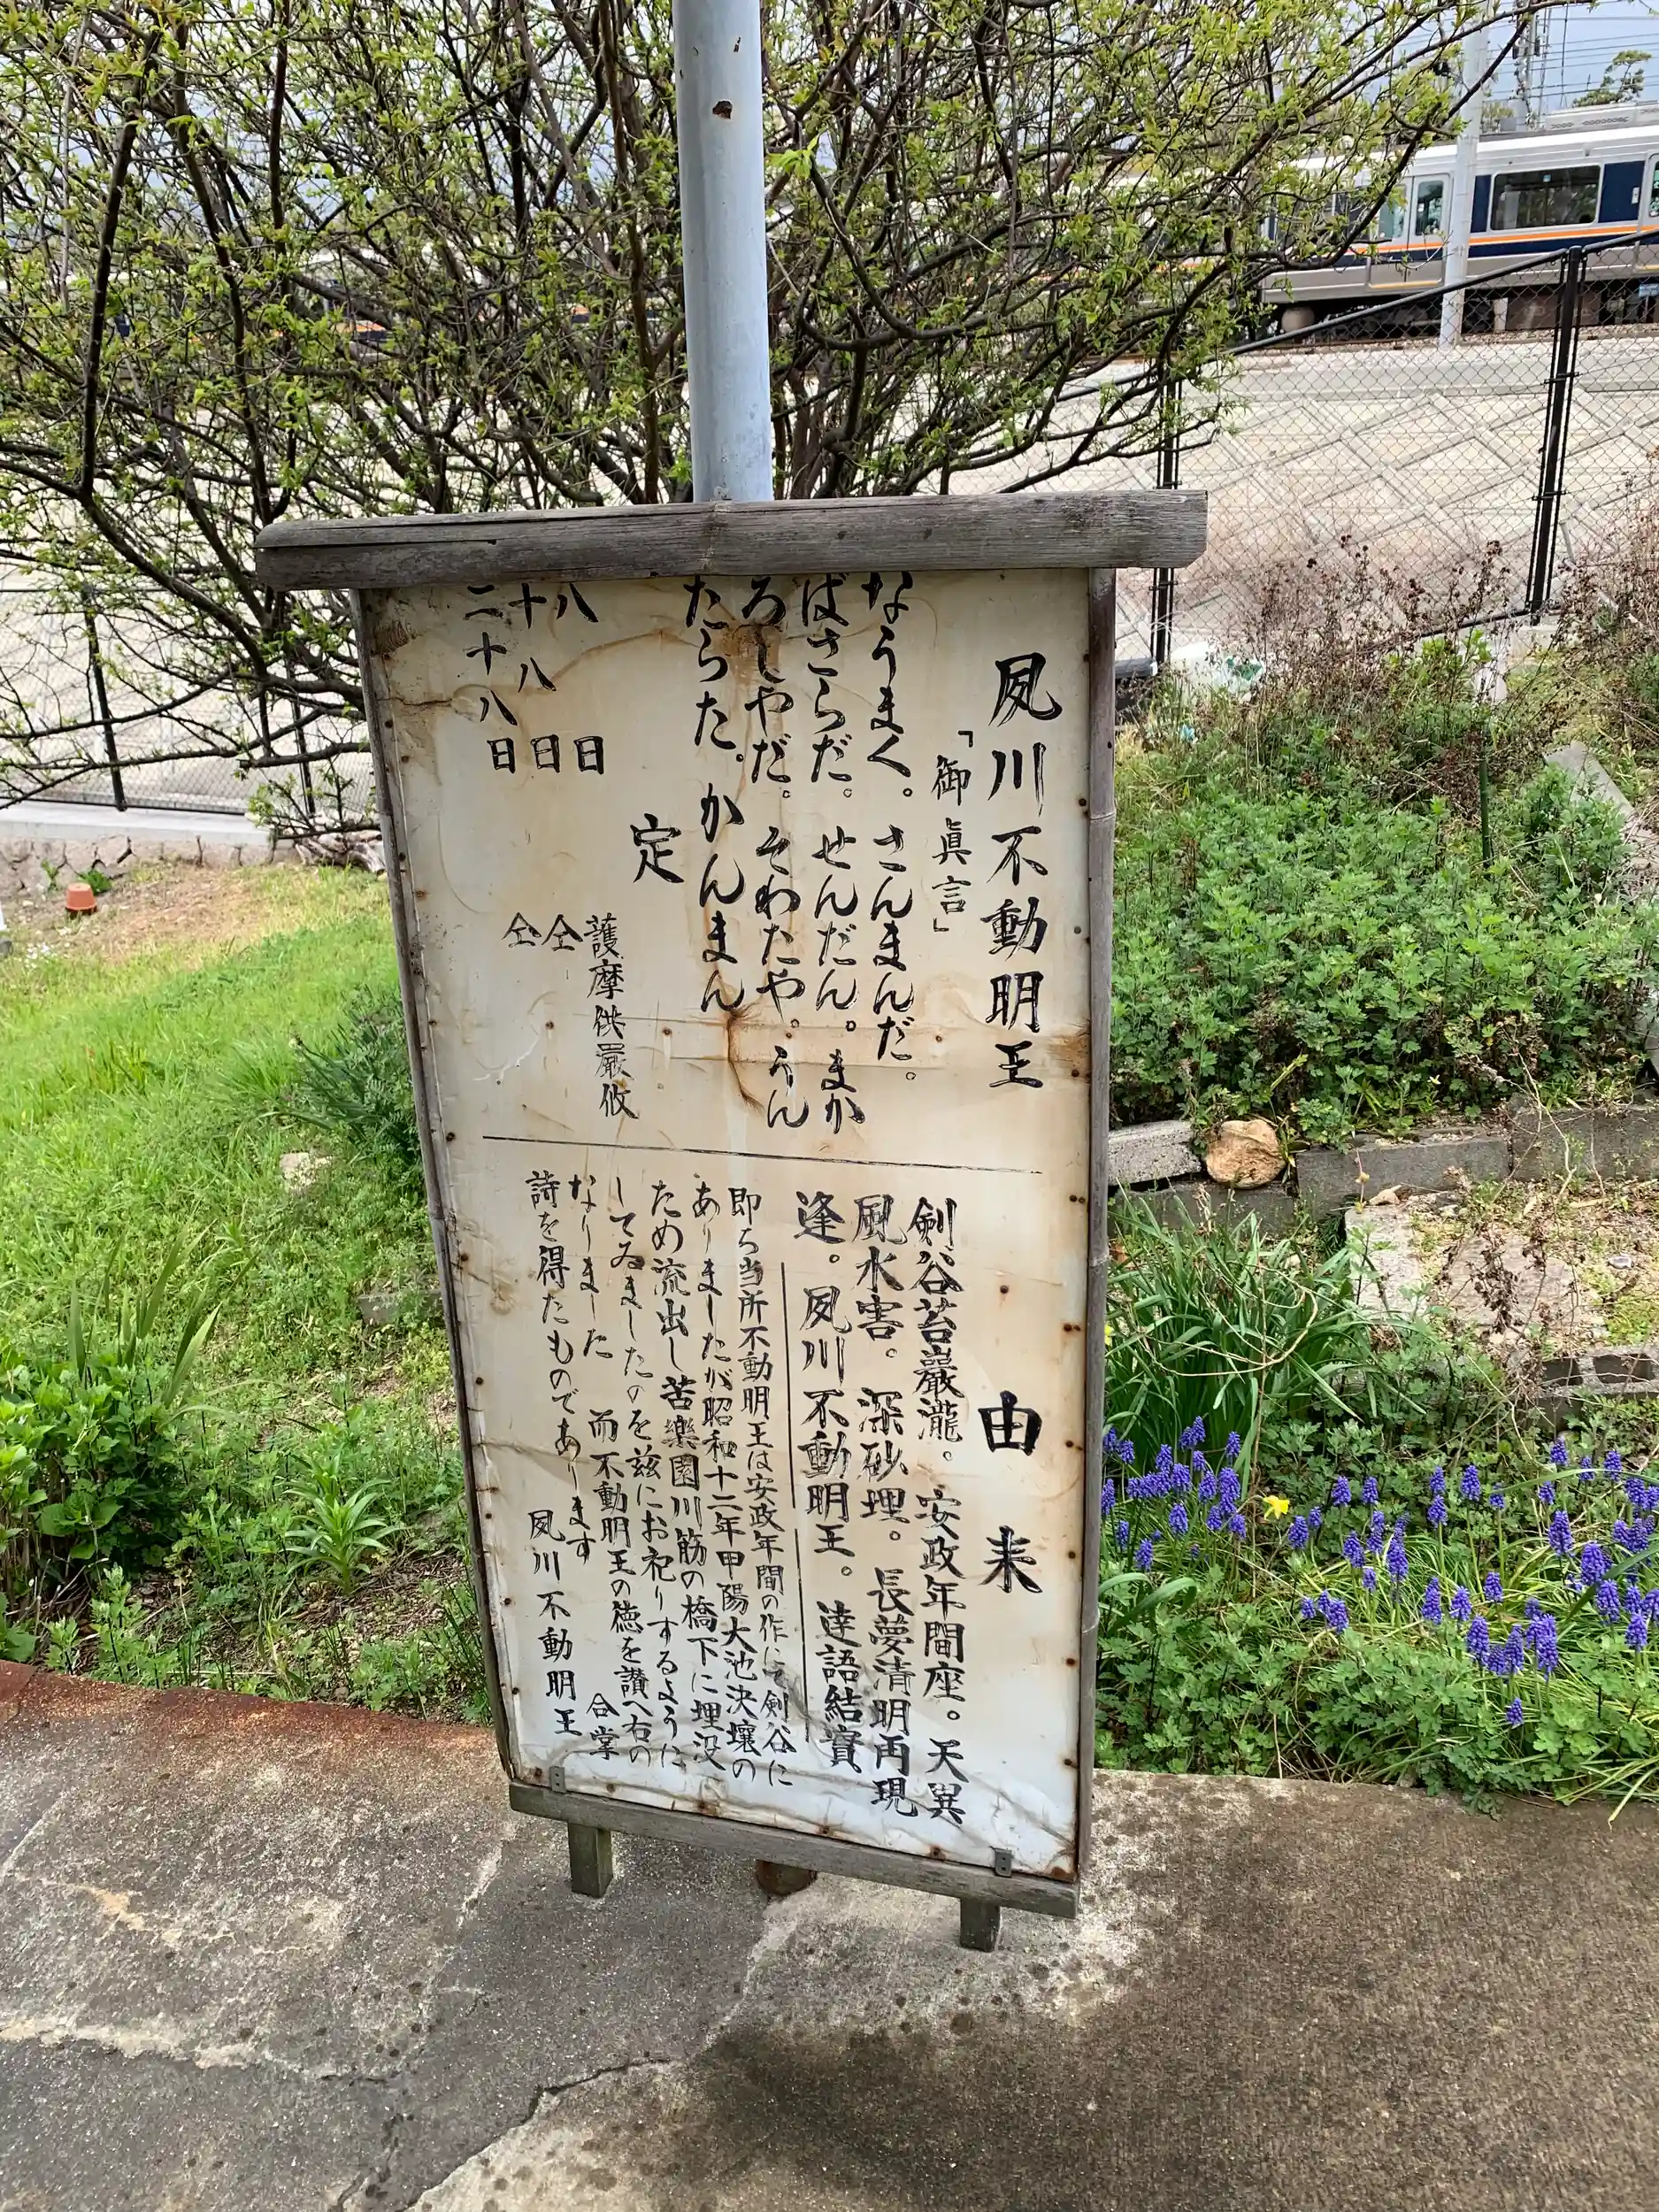 夙川不動明王
「御眞言」
なうまく。さんまんだ。
ばさらだ。せんだん。まか
ろしやだ。そわたや。うん
たらた。かんまん
定
八日 護摩供嚴修
十八日 仝
二十八日 仝
由来
剣谷苔巖瀧。安政年間座。天異
風水害。深砂埋。長夢清明再現
逢。夙川不動明王。達語結實
即ち当所不動明王は安政年間の作にて剣谷に
ありましたが昭和十二年甲陽大池決壊の
ため流出し苦樂園川筋の橋下に埋没
してゐましたのを茲にお祀りするように
なりました 而不動明王の徳を讃へ右の
詩を得たものであります 合掌
夙川不動明王